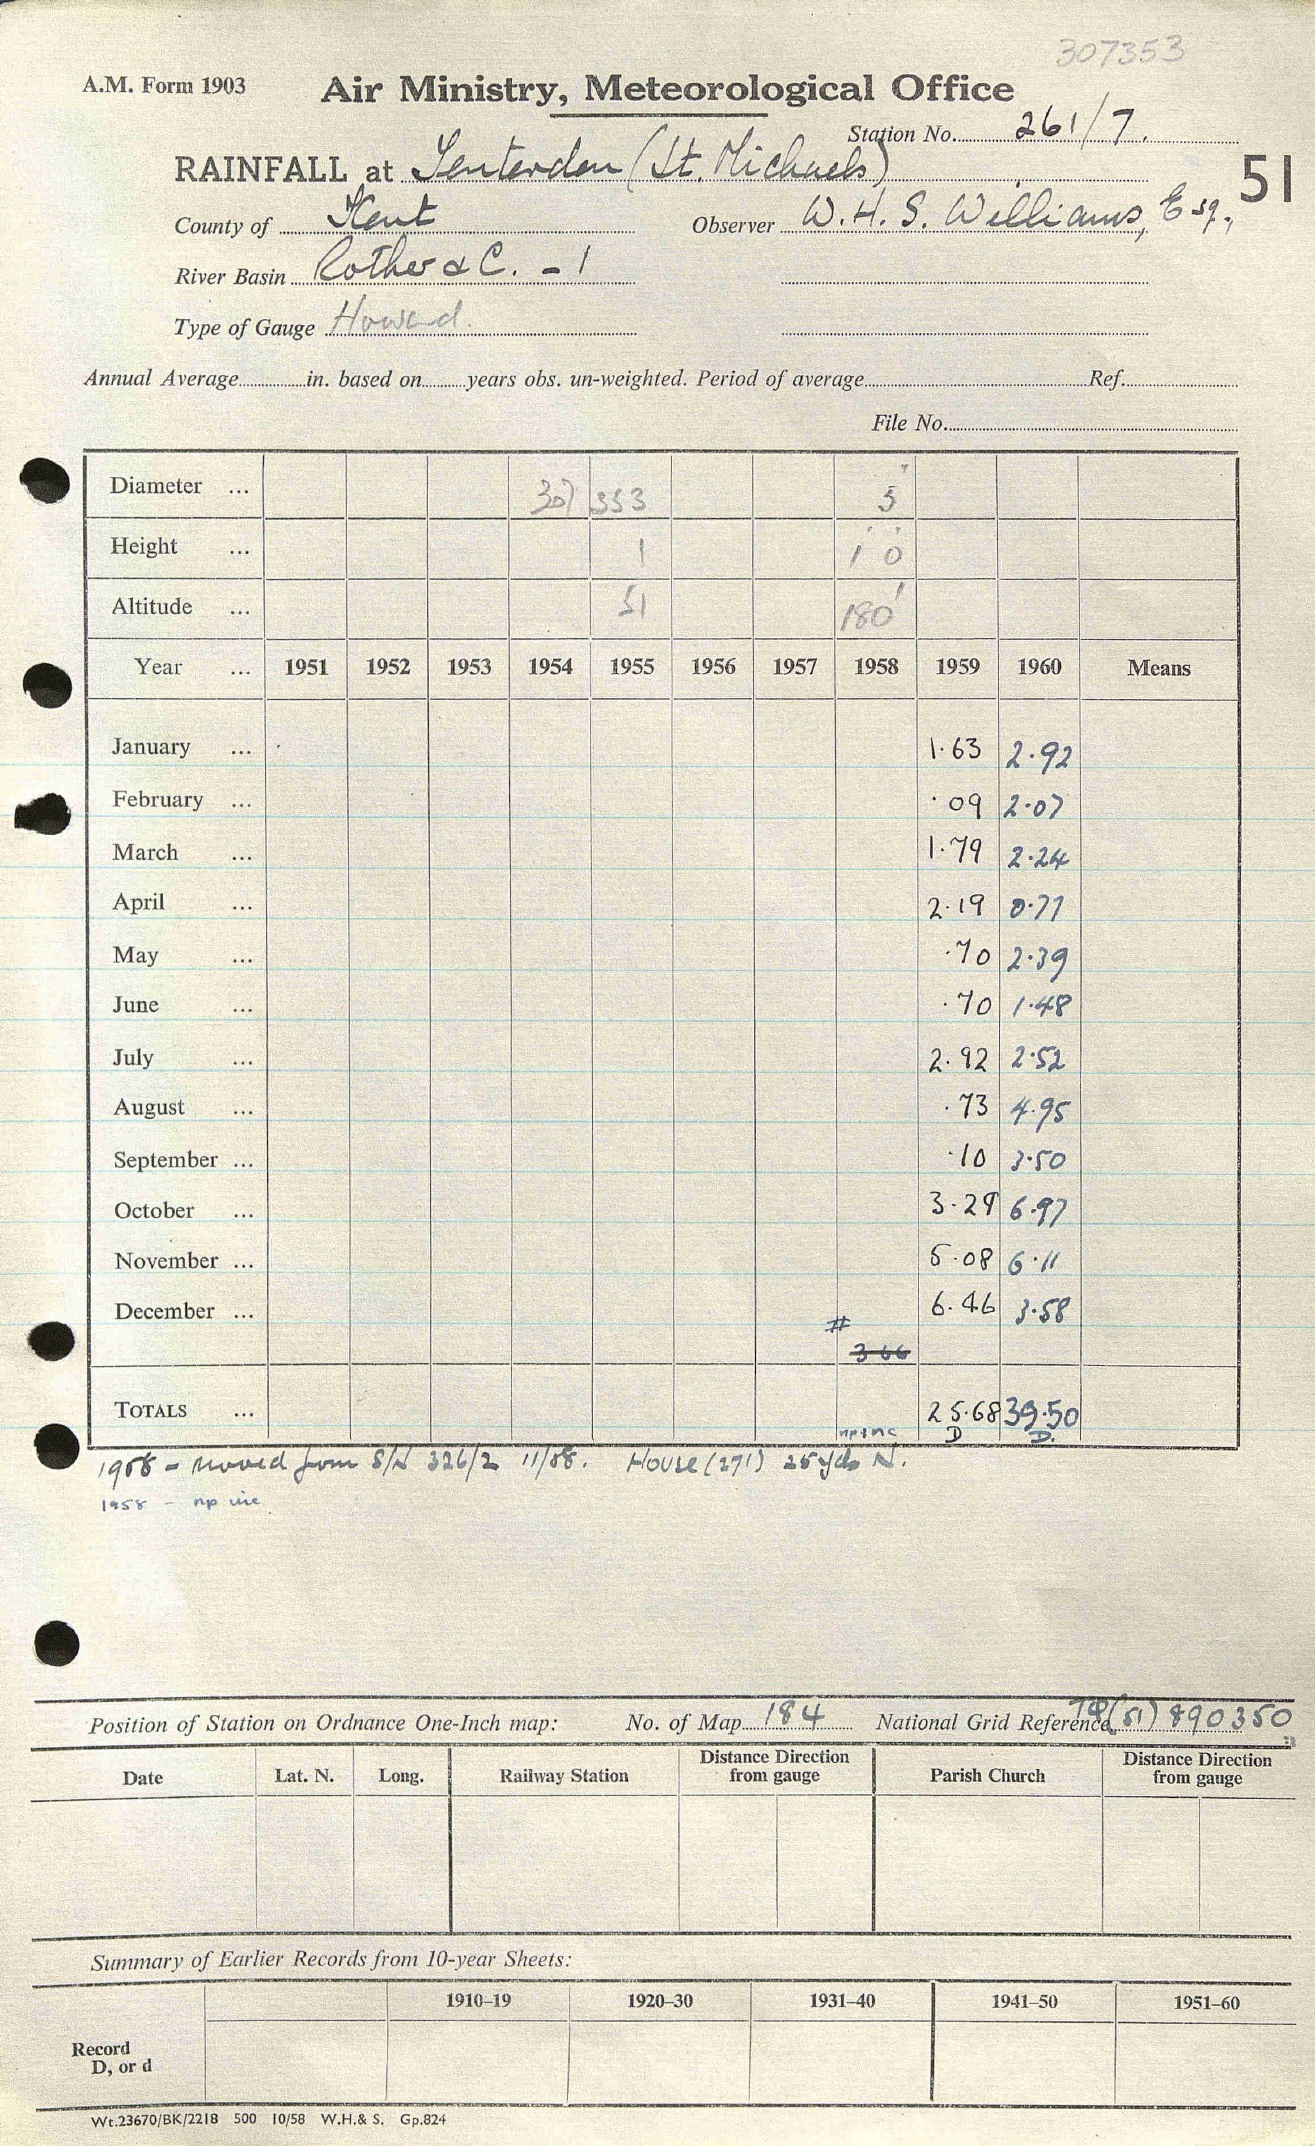 307353
A.M. Form 1903 Air Ministry, Meteorological Office
Station No. 261/7.
RAINFALL at Tenterden (St. Michaels)
51
County of Kent Observer W. H. S. Williams, Esq.,
River Basin Rother &C. - 1
Type of Gauge Howard.
Annual Average in. based on years obs. un-weighted. Period of average Ref.
File No.
Diameter ... 307 353 5"
Height ... 1 1' 0"
Altitude ... 51 180'
Year ... 1951 1952 1953 1954 1955 1956 1957 1958 1959 1960 Means
January ... 1.63 2.92
February ... .09 2.07
March ... 1.79 2.24
April ... 2.19 0.77
May ... .70 2.39
June ... .70 1.48
July ... 2.92 2.52
August ... .73 4.95
September ... .10 3.50
October ... 3.29 6.97
November ... 5.08 6.11
December ... 6.46 3.58
# 3 66
TOTALS ... 25.68 39.50
np inc D D.
1958 - moved from S/N 326/2 11/58. House (27') 25 yds N.
1958 - np inc
Position of Station on Ordnance One-Inch map: No. of Map 184 National Grid Reference TQ (51) 890350
Date Lat. N. Long. Railway Station Distance Direction from gauge Parish Church Distance Direction from gauge
Summary of Earlier Records from 10-year Sheets:
1910–19 1920–30 1931–40 1941–50 1951–60
Record
D, or d
Wt.23670/BK/2218 500 10/58 W.H.& S. Gp.824